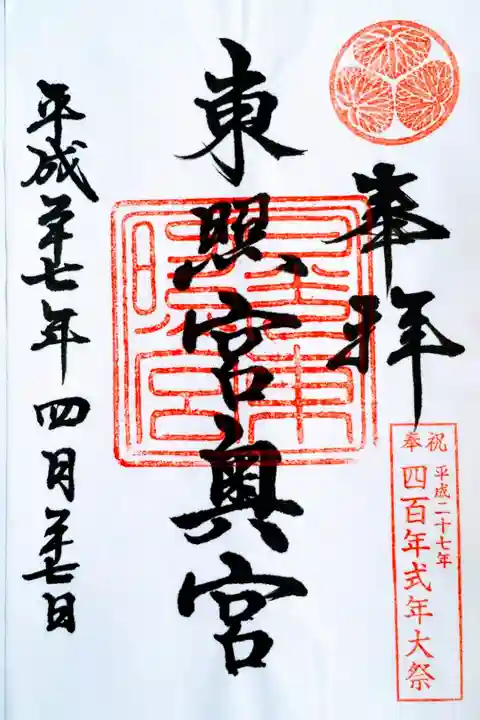 奉拝
奉祝
平成二十七年
四百年式年大祭
東照宮奥宮
平成廿七年四月廿七日